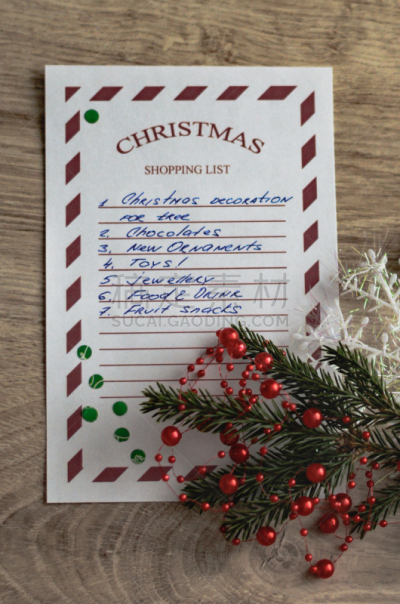 CHRISTMAS
SHOPPING LIST
1. Christmas decoration
for tree
2. Chocolates
3. New Ornaments
4. Toys!
5. jewellery
6. Food & Drink
7. Fruit snacks
SUCAI.GAODING.COM